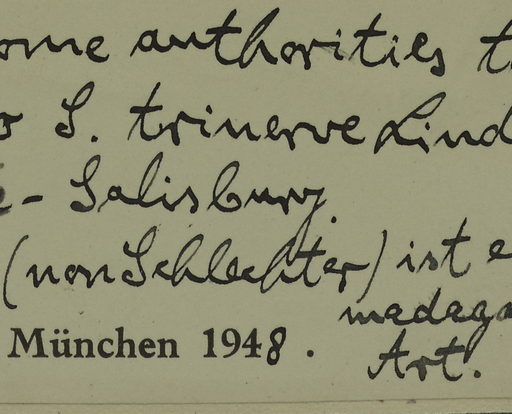 ome authorities t
S. trinerve Lind
- Salisbury.
(non Schlechter) ist e
madaga
München 1948.
Art.